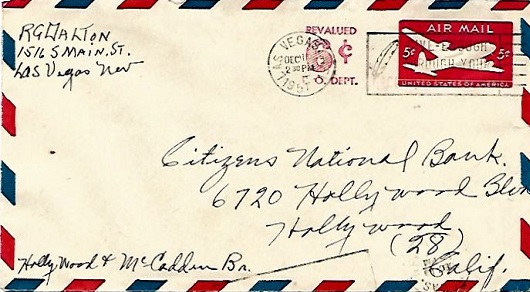 RG DALTON
1516 S MAIN. ST.
Las Vegas Nev
REVALUED
6¢
P.O. DEPT.
VEGAS
DEC
AIR MAIL
5¢ 5¢
UNITED STATES OF AMERICA
Citizens National Bank.
6720 Hollywood Blv
Hollywood
(28)
Calif.
Hollywood & McCadden Br.